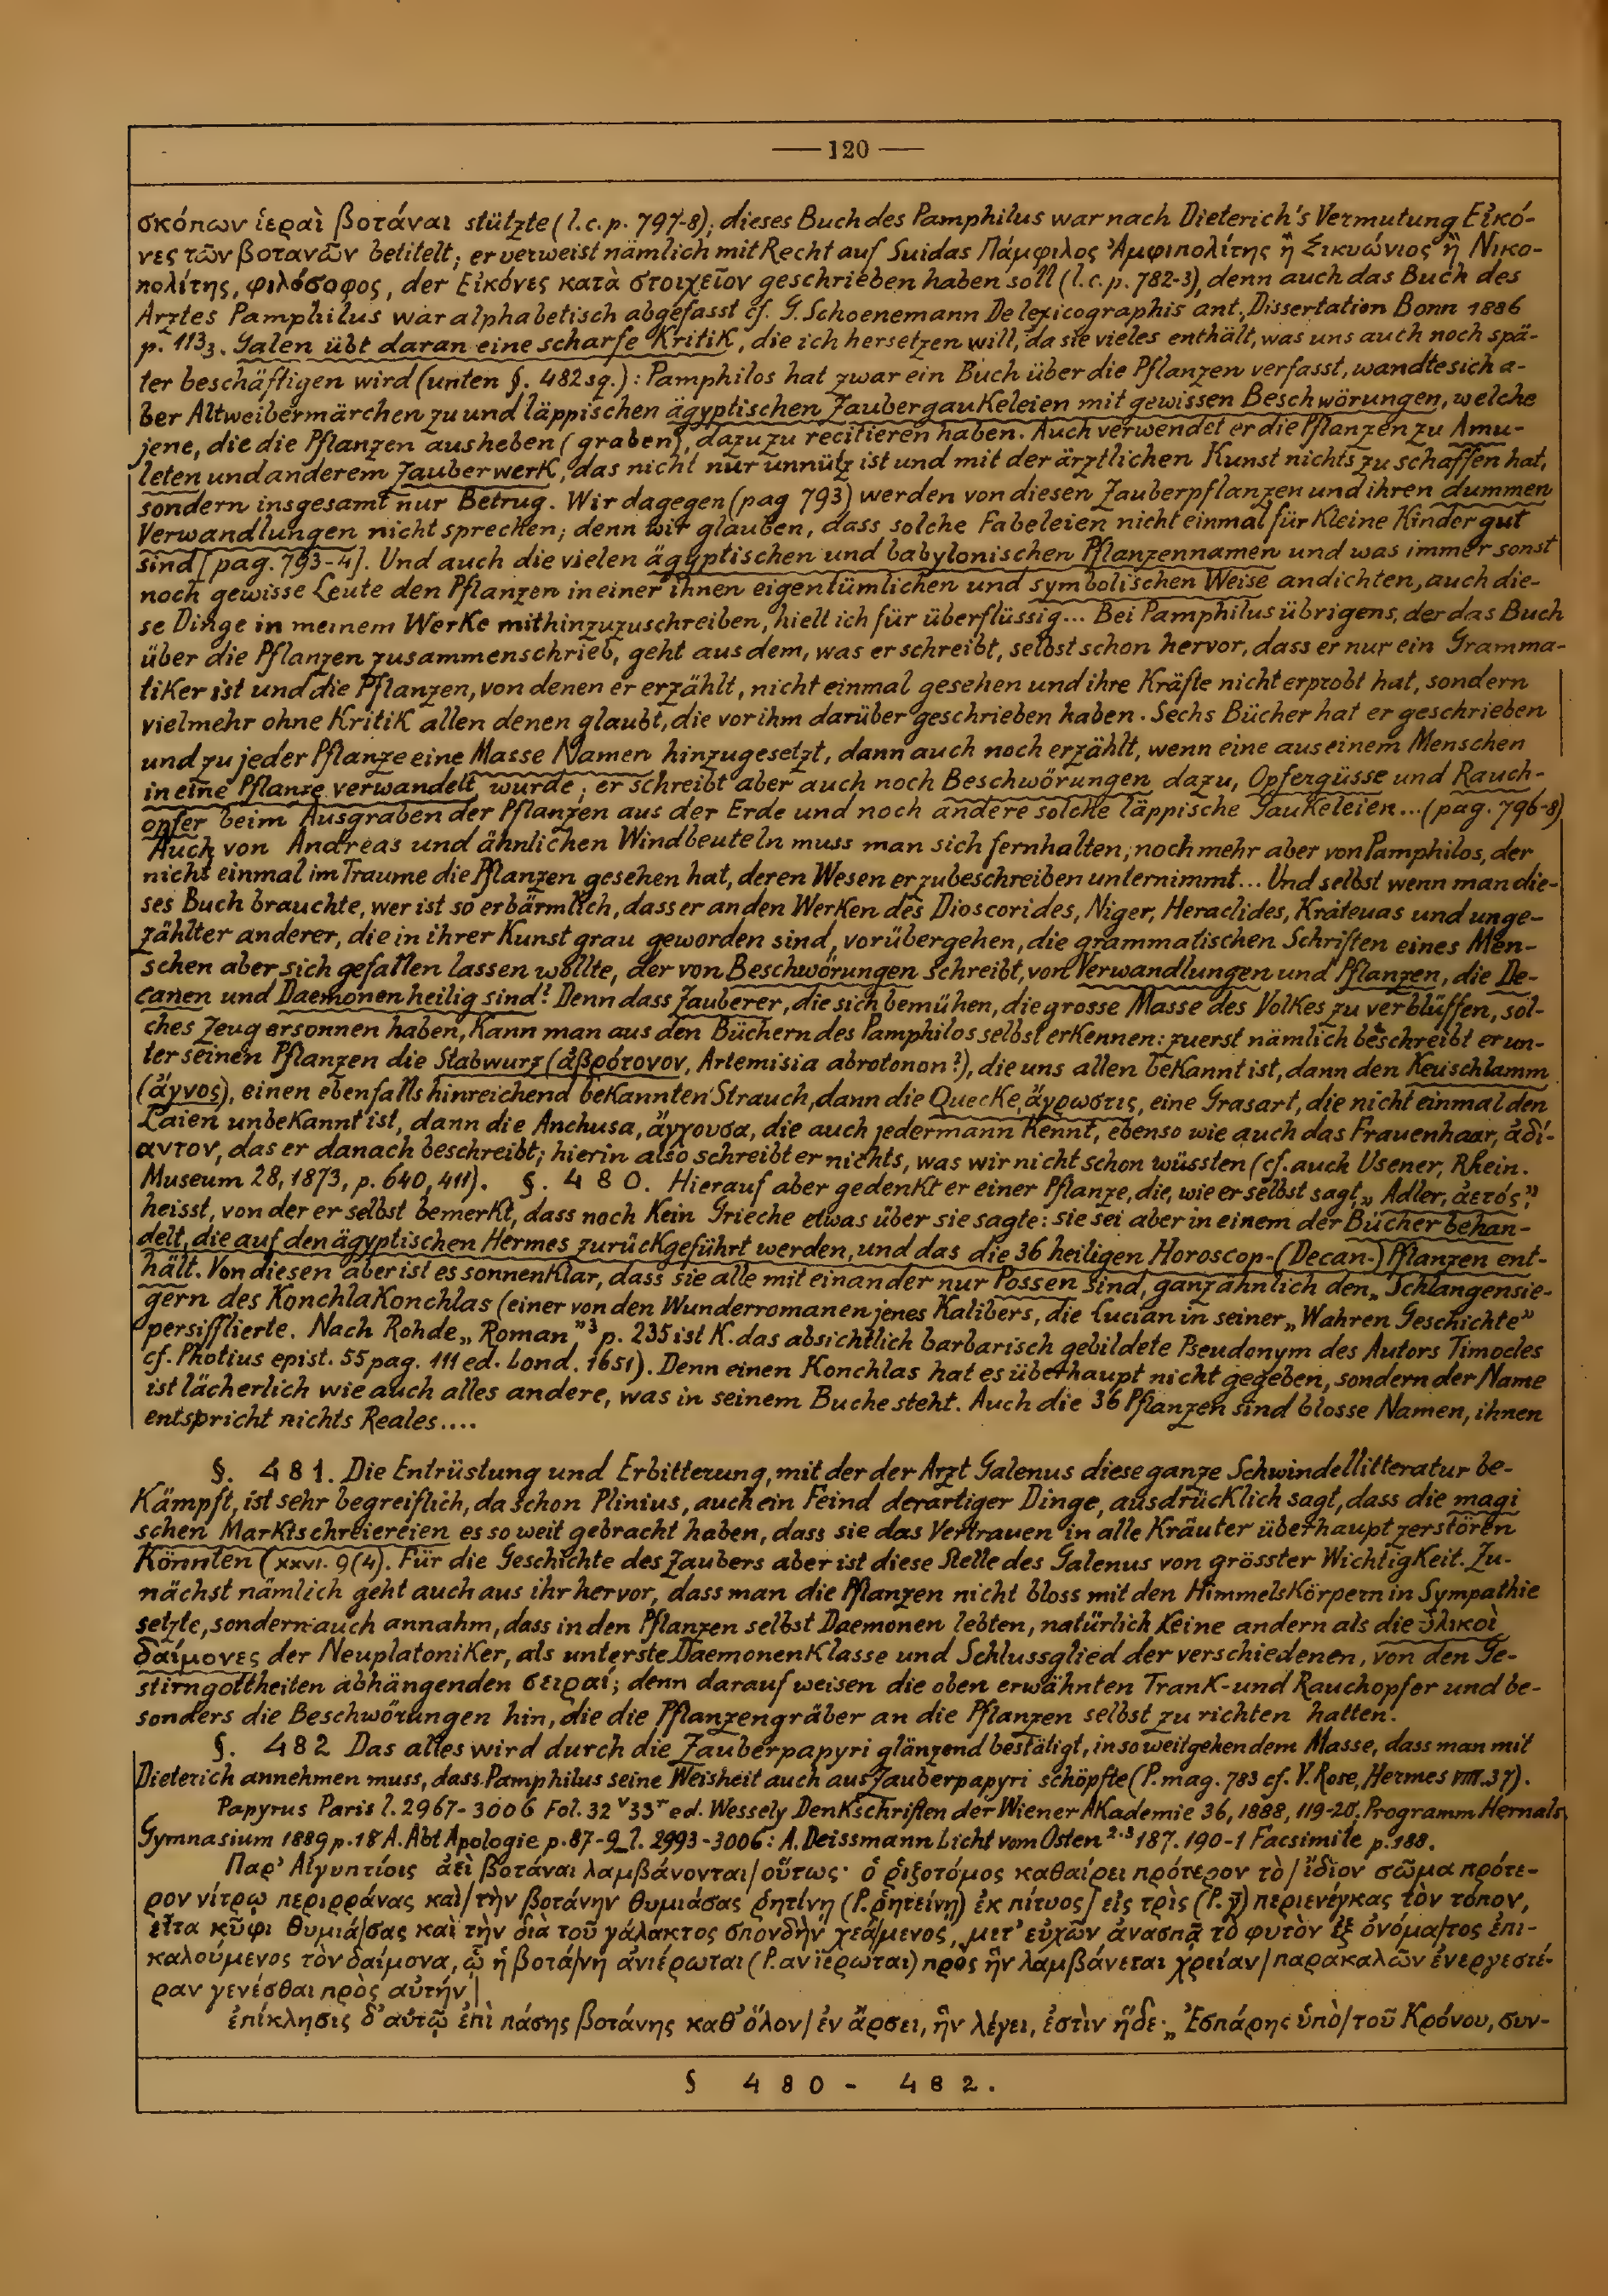 — 120 —
σκόπων ἱεραὶ βοτάναι stützte (l.c.p. 797-8); dieses Buch des Pamphilus war nach Dieterich's Vermutung Εἰκό-
νες τῶν βοτανῶν betitelt; er verweist nämlich mit Recht auf Suidas Πάμφιλος Ἀμφιπολίτης ἢ Σικυώνιος ἢ Νικο-
πολίτης, φιλόσοφος, der Εἰκόνες κατὰ στοιχεῖον geschrieben haben soll (l.c.p. 782-3), denn auch das Buch des
Arztes Pamphilus war alphabetisch abgefasst cf. G. Schoenemann De lexicographis ant., Dissertation Bonn 1886
p. 113₃. Galen übt daran eine scharfe Kritik, die ich hersetzen will, da sie vieles enthält, was uns auch noch spä-
ter beschäftigen wird (unten §. 482 sq.): Pamphilos hat zwar ein Buch über die Pflanzen verfasst, wandte sich a-
ber Altweibermärchen zu und läppischen ägyptischen Zaubergaukeleien mit gewissen Beschwörungen, welche
jene, die die Pflanzen ausheben (graben), dazu zu recitieren haben. Auch verwendet er die Pflanzen zu Amu-
leten und anderem Zauberwerk, das nicht nur unnütz ist und mit der ärztlichen Kunst nichts zu schaffen hat,
sondern insgesamt nur Betrug. Wir dagegen (pag 793) werden von diesen Zauberpflanzen und ihren dummen
Verwandlungen nicht sprechen; denn wir glauben, dass solche Fabeleien nicht einmal für kleine Kinder gut
sind [pag. 793-4]. Und auch die vielen ägyptischen und babylonischen Pflanzennamen und was immer sonst
noch gewisse Leute den Pflanzen in einer ihnen eigentümlichen und symbolischen Weise andichten, auch die-
se Dinge in meinem Werke mithinzuzuschreiben, hielt ich für überflüssig... Bei Pamphilus übrigens, der das Buch
über die Pflanzen zusammenschrieb, geht aus dem, was er schreibt, selbst schon hervor, dass er nur ein Gramma-
tiker ist und die Pflanzen, von denen er erzählt, nicht einmal gesehen und ihre Kräfte nicht erprobt hat, sondern
vielmehr ohne Kritik allen denen glaubt, die vor ihm darüber geschrieben haben. Sechs Bücher hat er geschrieben
und zu jeder Pflanze eine Masse Namen hinzugesetzt, dann auch noch erzählt, wenn eine aus einem Menschen
in eine Pflanze verwandelt wurde; er schreibt aber auch noch Beschwörungen dazu, Opfergüsse und Rauch-
opfer beim Ausgraben der Pflanzen aus der Erde und noch andere solche läppische Gaukeleien...(pag. 796-8)
Auch von Andreas und ähnlichen Windbeuteln muss man sich fernhalten, noch mehr aber von Pamphilos, der
nicht einmal im Traume die Pflanzen gesehen hat, deren Wesen er zu beschreiben unternimmt... Und selbst wenn man die-
ses Buch brauchte, wer ist so erbärmlich, dass er an den Werken des Dioscorides, Niger, Heraclides, Krateuas und unge-
zählter anderer, die in ihrer Kunst grau geworden sind, vorübergehen, die grammatischen Schriften eines Men-
schen aber sich gefallen lassen wollte, der von Beschwörungen schreibt, von Verwandlungen und Pflanzen, die De-
canen und Daemonen heilig sind? Denn dass Zauberer, die sich bemühen, die grosse Masse des Volkes zu verblüffen, sol-
ches Zeug ersonnen haben, kann man aus den Büchern des Pamphilos selbst erkennen: zuerst nämlich beschreibt er un-
ter seinen Pflanzen die Stabwurz (ἀβρότονον, Artemisia abrotonon?), die uns allen bekannt ist, dann den Keuschlamm
(ἄγνος), einen ebenfalls hinreichend bekannten Strauch, dann die Quecke, ἄγρωστις, eine Grasart, die nicht einmal den
Laien unbekannt ist, dann die Anchusa, ἄγχουσα, die auch jedermann kennt, ebenso wie auch das Frauenhaar, ἀδί-
αντον, das er danach beschreibt; hierin also schreibt er nichts, was wir nicht schon wüssten (cf. auch Usener, Rhein.
Museum 28, 1873, p. 640, 411). §. 480. Hierauf aber gedenkt er einer Pflanze, die, wie er selbst sagt, „Adler, ἀετός"
heisst, von der er selbst bemerkt, dass noch kein Grieche etwas über sie sagte: sie sei aber in einem der Bücher behan-
delt, die auf den ägyptischen Hermes zurückgeführt werden, und das die 36 heiligen Horoscop-(Decan-)Pflanzen ent-
hält. Von diesen aber ist es sonnenklar, dass sie alle miteinander nur Possen sind, ganz ähnlich den „Schlangensie-
gern des Konchlakonchlas (einer von den Wunderromanen jenes Kalibers, die Lucian in seiner „Wahren Geschichte"
persifflierte. Nach Rohde „Roman"³ p. 235 ist K. das absichtlich barbarisch gebildete Pseudonym des Autors Timocles
cf. Photius epist. 55 pag. 111 ed. Lond. 1651). Denn einen Konchlas hat es überhaupt nicht gegeben, sondern der Name
ist lächerlich wie auch alles andere, was in seinem Buche steht. Auch die 36 Pflanzen sind blosse Namen, ihnen
entspricht nichts Reales....
§. 481. Die Entrüstung und Erbitterung, mit der der Arzt Galenus diese ganze Schwindellitteratur be-
kämpft, ist sehr begreiflich, da schon Plinius, auch ein Feind derartiger Dinge, ausdrücklich sagt, dass die magi
schen Marktschreiereien es so weit gebracht haben, dass sie das Vertrauen in alle Kräuter überhaupt zerstören
könnten (XXVI. 9(4). Für die Geschichte des Zaubers aber ist diese Stelle des Galenus von grösster Wichtigkeit. Zu-
nächst nämlich geht auch aus ihr hervor, dass man die Pflanzen nicht bloss mit den Himmelskörpern in Sympathie
setzte, sondern auch annahm, dass in den Pflanzen selbst Daemonen lebten, natürlich keine andern als die ὑλικοὶ
δαίμονες der Neuplatoniker, als unterste Daemonenklasse und Schlussglied der verschiedenen, von den Ge-
stirngottheiten abhängenden σειραί; denn darauf weisen die oben erwähnten Trank- und Rauchopfer und be-
sonders die Beschwörungen hin, die die Pflanzengräber an die Pflanzen selbst zu richten hatten.
§. 482 Das alles wird durch die Zauberpapyri glänzend bestätigt, in so weitgehendem Masse, dass man mit
Dieterich annehmen muss, dass Pamphilus seine Weisheit auch aus Zauberpapyri schöpfte (P. mag. 783 cf. V. Rose, Hermes VIII. 37).
Papyrus Paris l. 2967-3006 Fol. 32ᵛ33ʳ ed. Wessely Denkschriften der Wiener Akademie 36, 1888, 119-20. Programm Hernals
Gymnasium 1889 p. 18 A. Abt Apologie p. 87-9 l. 2993-3006: A. Deissmann Licht vom Osten ²·³ 187. 190-1 Facsimile p. 188.
Παρ' Αἰγυπτίοις ἀεὶ βοτάναι λαμβάνονται/οὕτως· ὁ ῥιζοτόμος καθαίρει πρότερον τὸ/ἴδιον σῶμα πρότε-
ρον νίτρῳ περιρράνας καὶ/τὴν βοτάνην θυμιάσας ῥητίνῃ (P. ῥητείνῃ) ἐκ πίτυος/εἰς τρὶς (P. γ̄) περιενέγκας τὸν τόπον,
εἶτα κῦφι θυμιά/σας καὶ τὴν διὰ τοῦ γάλακτος σπονδὴν χεά/μενος, μετ' εὐχῶν ἀνασπᾷ τὸ φυτὸν ἐξ ὀνόμα/τος ἐπι-
καλούμενος τὸν δαίμονα, ᾧ ἡ βοτά/νη ἀνιέρωται (P. ανϊερωται) πρὸς ἣν λαμβάνεται χρείαν/παρακαλῶν ἐνεργεστέ-
ραν γενέσθαι πρὸς αὐτήν|
ἐπίκλησις δ' αὐτῷ ἐπὶ πάσης βοτάνης καθ' ὅλον/ἐν ἄρσει, ἣν λέγει, ἐστὶν ἥδε· „Ἐσπάρης ὑπὸ/τοῦ Κρόνου, συν-
§ 480 - 482.